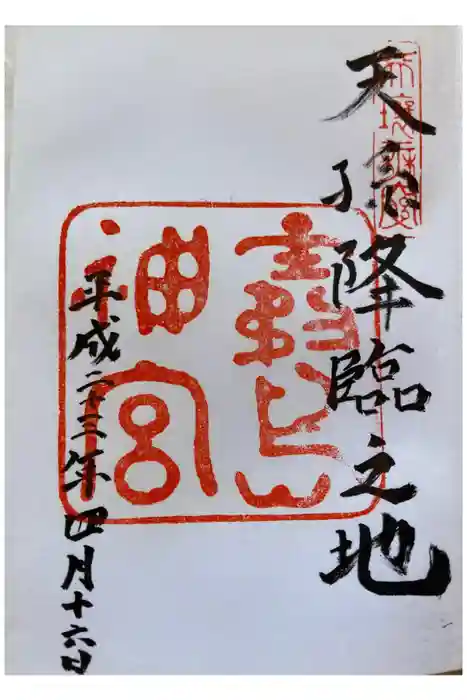 天孫降臨之地
神宮
平成二十三年四月十六日